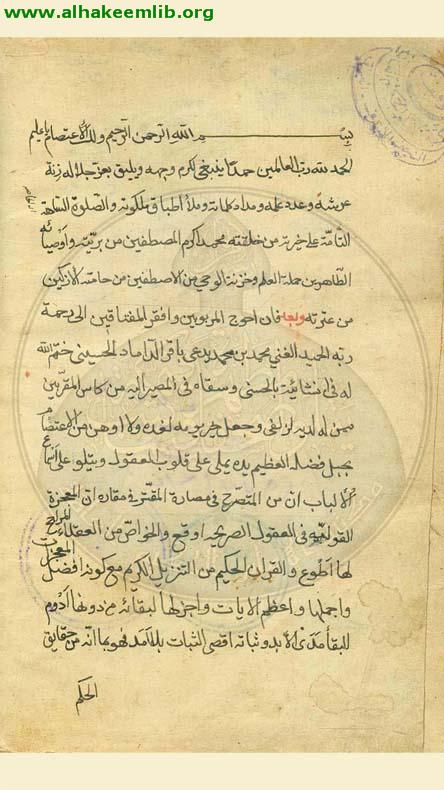 www.alhakeemlib.org
بسم الله الرحمن الرحيم ولك الاعتصام يا عليم
الحمد لله رب العالمين حمدا ينبغي لكرم وجهه ويليق بعز جلاله زنة
عرشه وعدد علمه ومداد كلماته وملأ اطباق ملكوته والصلوة
التامة على خيرته من خليقته محمد اكرم المصطفين من بريته واوصيائه
الطاهرين حملة العلم وخزنة الوحي من الاصطفين من حامته الازكين
من عترته وبعد فان احوج المربوبين وافقر المفتاقين الى رحمة
ربه الحميد الغني محمد بن محمد يدعى باقر الداماد الحسيني ختم الله
له في نشأتيه بالحسنى وسقاه في المصير اليه من كاس المقربين
ممن له لديه لزلفى وجعل خير يوميه لغده ولا اوهن من الاعتصام
بحبل فضله العظيم يده يملى على قلوب المعقول ويتلو على اسماع
الالباب ان من المتصرح في مصارة المقتر في مقاره ان المعجزة
القولية في العقول الصريحة اوقع والخواص من العقلاء
لها اطوع والقران الحكيم من التنزيل الكريم مع كونه افضل المعجزات
واجملها واعظم الايات واجزلها لبقائه من دونها ادوم
للبقا مدى الابد وثباته اقصى الثبات بلا امد فهو بما انه من حقايق
الحكم